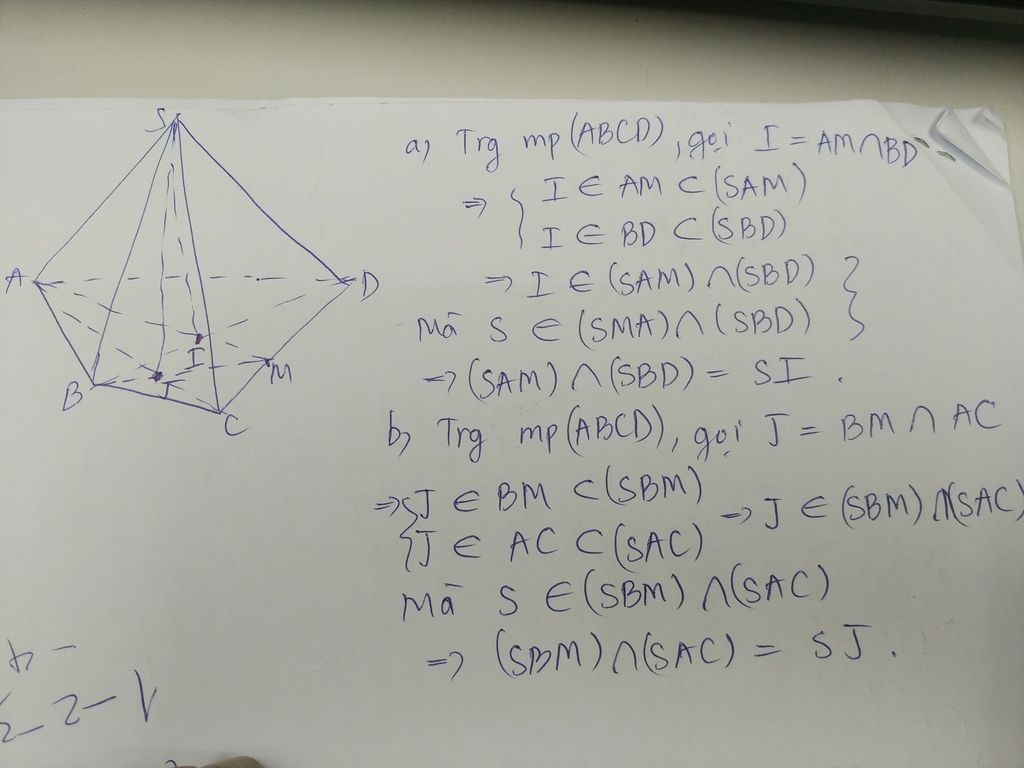 S
A
D
I
M
B
J
C
a, Trg mp(ABCD), gọi I = AM∩BD
=> { I ∈ AM ⊂ (SAM)
I ∈ BD ⊂ (SBD)
=> I ∈ (SAM) ∩ (SBD) }
Mà S ∈ (SMA) ∩ (SBD)
=> (SAM) ∩ (SBD) = SI .
b, Trg mp(ABCD), gọi J = BM ∩ AC
=> { J ∈ BM ⊂ (SBM) => J ∈ (SBM) ∩ (SAC)
J ∈ AC ⊂ (SAC)
Mà S ∈ (SBM) ∩ (SAC)
=> (SBM) ∩ (SAC) = SJ .